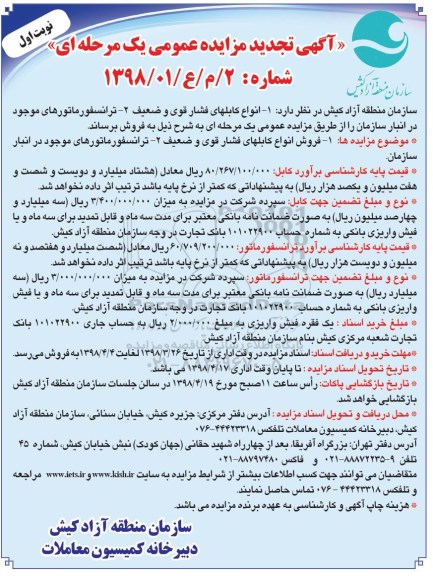 نوبت اول
سازمان منطقه آزاد کیش
« آگهی تجدید مزایده عمومی یک مرحله ای»
شماره: ۲/م/ع/۱۳۹۸/۰۱
سازمان منطقه آزاد کیش در نظر دارد: ۱-انواع کابلهای فشار قوی و ضعیف ۲- ترانسفورماتورهای موجود
در انبار سازمان را از طریق مزایده عمومی یک مرحله ای به شرح ذیل به فروش برساند.
* موضوع مزایده ها: ۱- فروش انواع کابلهای فشار قوی و ضعیف ۲- ترانسفورماتورهای موجود در انبار
سازمان.
* قیمت پایه کارشناسی برآورد کابل: ۸۰/۲۶۷/۱۰۰/۰۰۰ ریال معادل (هشتاد میلیارد و دویست و شصت و
هفت میلیون و یکصد هزار ریال) به پیشنهاداتی که کمتر از نرخ پایه باشد ترتیب اثر داده نخواهد شد.
* نوع و مبلغ تضمین جهت کابل: سپرده شرکت در مزایده به میزان ۳/۴۰۰/۰۰۰/۰۰۰ ریال (سه میلیارد و
چهارصد میلیون ریال) به صورت ضمانت نامه بانکی معتبر برای مدت سه ماه و قابل تمدید برای سه ماه و یا
فیش واریزی بانکی به شماره حساب ۱۰۱۰۲۲۹۰۰ بانک تجارت در وجه سازمان منطقه آزاد کیش.
* قیمت پایه کارشناسی برآورد ترانسفورماتور: ۶۰/۷۰۹/۲۰۰/۰۰۰ ریال معادل (شصت میلیارد و هفتصد و نه
میلیون و دویست هزار ریال) به پیشنهاداتی که کمتر از نرخ پایه باشد ترتیب اثر داده نخواهد شد.
* نوع و مبلغ تضمین جهت ترانسفورماتور: سپرده شرکت در مزایده به میزان ۳/۰۰۰/۰۰۰/۰۰۰ ریال (سه
میلیارد ریال) به صورت ضمانت نامه بانکی معتبر برای مدت سه ماه و قابل تمدید برای سه ماه و یا فیش
واریزی بانکی به شماره حساب ۱۰۱۰۲۲۹۰۰ بانک تجارت در وجه سازمان منطقه آزاد کیش.
* مبلغ خرید اسناد : یک فقره فیش واریزی به مبلغ ۲/۰۰۰/۰۰۰ ریال به حساب جاری ۱۰۱۰۲۲۹۰۰ بانک
تجارت شعبه مرکزی کیش بنام سازمان منطقه آزاد کیش.
*مهلت خرید و دریافت اسناد: اسناد مزایده در وقت اداری از تاریخ ۱۳۹۸/۳/۲۶ لغایت ۱۳۹۸/۴/۴ به فروش می رسد.
* تاریخ تحویل اسناد مزایده : تا پایان وقت اداری ۱۳۹۸/۴/۱۷ می باشد.
* تاریخ بازگشایی پاکات: رأس ساعت ۱۱ صبح مورخ ۱۳۹۸/۴/۱۹ در سالن جلسات سازمان منطقه آزاد کیش
بازگشایی خواهد شد.
* محل دریافت و تحویل اسناد مزایده : آدرس دفتر مرکزی: جزیره کیش، خیابان سنائی، سازمان منطقه آزاد
کیش، دبیرخانه کمیسیون معاملات تلفکس ۴۴۴۲۳۳۱۸-۰۷۶
آدرس دفتر تهران: بزرگراه آفریقا، بعد از چهارراه شهید حقانی (جهان کودک) نبش خیابان کیش، شماره ۴۵
تلفن ۹-۸۸۸۷۲۲۳۵-۰۲۱ و فاکس ۸۸۷۹۷۴۸۰-۰۲۱
متقاضیان می توانند جهت کسب اطلاعات بیشتر از شرایط مزایده به سایت www.kish.ir و www.iets.ir مراجعه
و تلفکس ۴۴۴۲۳۳۱۸ - ۰۷۶ تماس حاصل نمایند.
* هزینه چاپ آگهی و کارشناسی به عهده برنده مزایده می باشد.
سازمان منطقه آزاد کیش
دبیرخانه کمیسیون معاملات